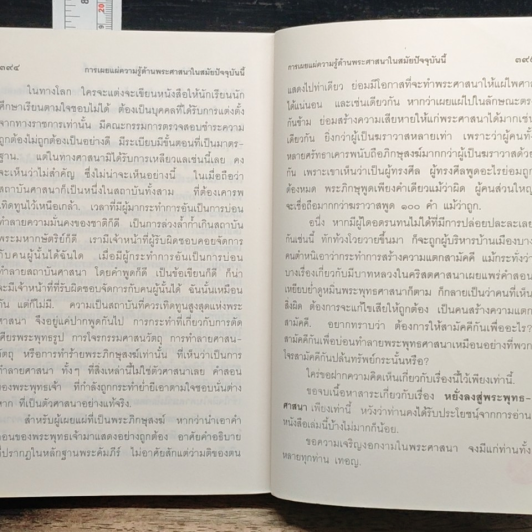 ๓๙๔ การเผยแผ่ความรู้ด้านพระศาสนาในสมัยปัจจุบันนี้
ในทางโลก ใครจะแต่งจะเขียนหนังสือให้นักเรียนนัก
ศึกษาเรียนตามใจชอบไม่ได้ ต้องเป็นบุคคลที่ได้รับการแต่งตั้ง
จากทางราชการเท่านั้น มีคณะกรรมการตรวจสอบชำระความ
ถูกต้องไม่ถูกต้องเป็นอย่างดี มีระเบียบมีขั้นตอนที่เป็นมาตร-
ฐาน แต่ในทางศาสนามิได้รับการเหลียวแลเช่นนี้เลย คง
จะเห็นว่าไม่สำคัญ ซึ่งไม่น่าจะเห็นอย่างนี้ ในเมื่อถือว่า
สถาบันศาสนาก็เป็นหนึ่งในสถาบันทั้งสาม ที่ต้องเคารพ
เทิดทูนไว้เหนือเกล้า เวลาที่มีผู้มากระทำการอันเป็นการบ่อน
ทำลายความมั่นคงของชาติก็ดี เป็นการล่วงล้ำก้ำเกินสถาบัน
พระมหากษัตริย์ก็ดี เรามีเจ้าหน้าที่ผู้รับผิดชอบคอยจัดการ
กับคนผู้นั้นได้ฉันใด เมื่อมีผู้กระทำการอันเป็นการบ่อน
ทำลายสถาบันศาสนา โดยคำพูดก็ดี เป็นข้อเขียนก็ดี ก็น่า
จะมีเจ้าหน้าที่ที่รับผิดชอบจัดการกับคนผู้นั้นได้ ฉันนั้นเหมือน
กัน แต่ก็ไม่มี ความเป็นสถาบันที่ควรเทิดทูนสูงสุดแห่งพระ
ศาสนา จึงอยู่แค่ปากพูดกันไป การกระทำที่เกี่ยวกับการตัด
เศียรพระพุทธรูป การโจรกรรมศาสนวัตถุ การทำลายศาสน-
วัตถุ หรือการทำร้ายพระภิกษุสงฆ์เท่านั้น ที่เห็นว่าเป็นการ
ทำลายศาสนา ทั้งๆ ที่สิ่งเหล่านี้ไม่ใช่ตัวศาสนาเลย คำสอน
ของพระพุทธเจ้า ที่กำลังถูกกระทำย่ำยีเอาตามใจชอบนั่นต่าง
หาก ที่เป็นตัวศาสนาอย่างแท้จริง
สำหรับผู้เผยแผ่ที่เป็นพระภิกษุสงฆ์ หากว่านำเอาคำ
สอนของพระพุทธเจ้ามาแสดงอย่างถูกต้อง อาศัยคำอธิบาย
ที่ปรากฏในหลักฐานพระคัมภีร์ ไม่อาศัยสักแต่ว่ามติของตน
การเผยแผ่ความรู้ด้านพระศาสนาในสมัยปัจจุบันนี้
แสดงไปท่าเดียว ย่อมมีโอกาสที่จะทำพระศาสนาให้แผ่ไพศาล
ได้แน่นอน และเช่นเดียวกัน หากว่าเผยแผ่ไปในลักษณะตรง
กันข้าม ย่อมสร้างความเสียหายให้แก่พระศาสนาได้มากเช่น
เดียวกัน ยิ่งกว่าผู้เป็นฆราวาสหลายเท่า เพราะว่าผู้คนทั้ง
หลายศรัทธาเคารพนับถือภิกษุสงฆ์มากกว่าผู้เป็นฆราวาสด้วย
กัน เพราะเขาเห็นว่าเป็นผู้ทรงศีล ผู้ทรงศีลพูดอะไรย่อมถูก
ต้องหมด พระภิกษุพูดเพียงคำเดียวแม้ว่าผิด ผู้คนส่วนใหญ่
จะเชื่อถือมากกว่าฆราวาสพูด ๑๐๐ คำ แม้ว่าถูก
อนึ่ง หากมีผู้ใดอดรนทนไม่ได้ที่มีการปล่อยปละละเลย
กันเช่นนี้ ทักท้วงโวยวายขึ้นมา ก็จะถูกผู้บริหารบ้านเมืองบาง
คนตำหนิเอาว่ากระทำการสร้างความแตกสามัคคี แม้กระทั่งว่า
บางเรื่องเกี่ยวกับมีบาทหลวงในคริสตศาสนาเผยแพร่คำสอน
เหยียบย่ำดูหมิ่นพระพุทธศาสนาก็ตาม ก็กลายเป็นว่าคนที่เห็น
สิ่งผิด ต้องการจะแก้ไขเสียให้ถูกต้อง เป็นคนสร้างความแตก
สามัคคี อยากทราบว่า ต้องการให้สามัคคีกันเพื่ออะไร?
สามัคคีกันเพื่อบ่อนทำลายพระพุทธศาสนาเหมือนอย่างที่พวก
โจรสามัคคีกันปล้นทรัพย์กระนั้นหรือ?
ใคร่ขอฝากความคิดเห็นเกี่ยวกับเรื่องนี้ไว้เพียงเท่านี้
ขอจบเนื้อหาสาระเกี่ยวกับเรื่อง หยั่งลงสู่พระพุทธ-
ศาสนา เพียงเท่านี้ หวังว่าท่านคงได้รับประโยชน์จากการอ่าน
หนังสือเล่มนี้บ้างไม่มากก็น้อย
ขอความเจริญงอกงามในพระศาสนา จงมีแก่ท่านทั้ง
หลายทุกท่าน เทอญ.